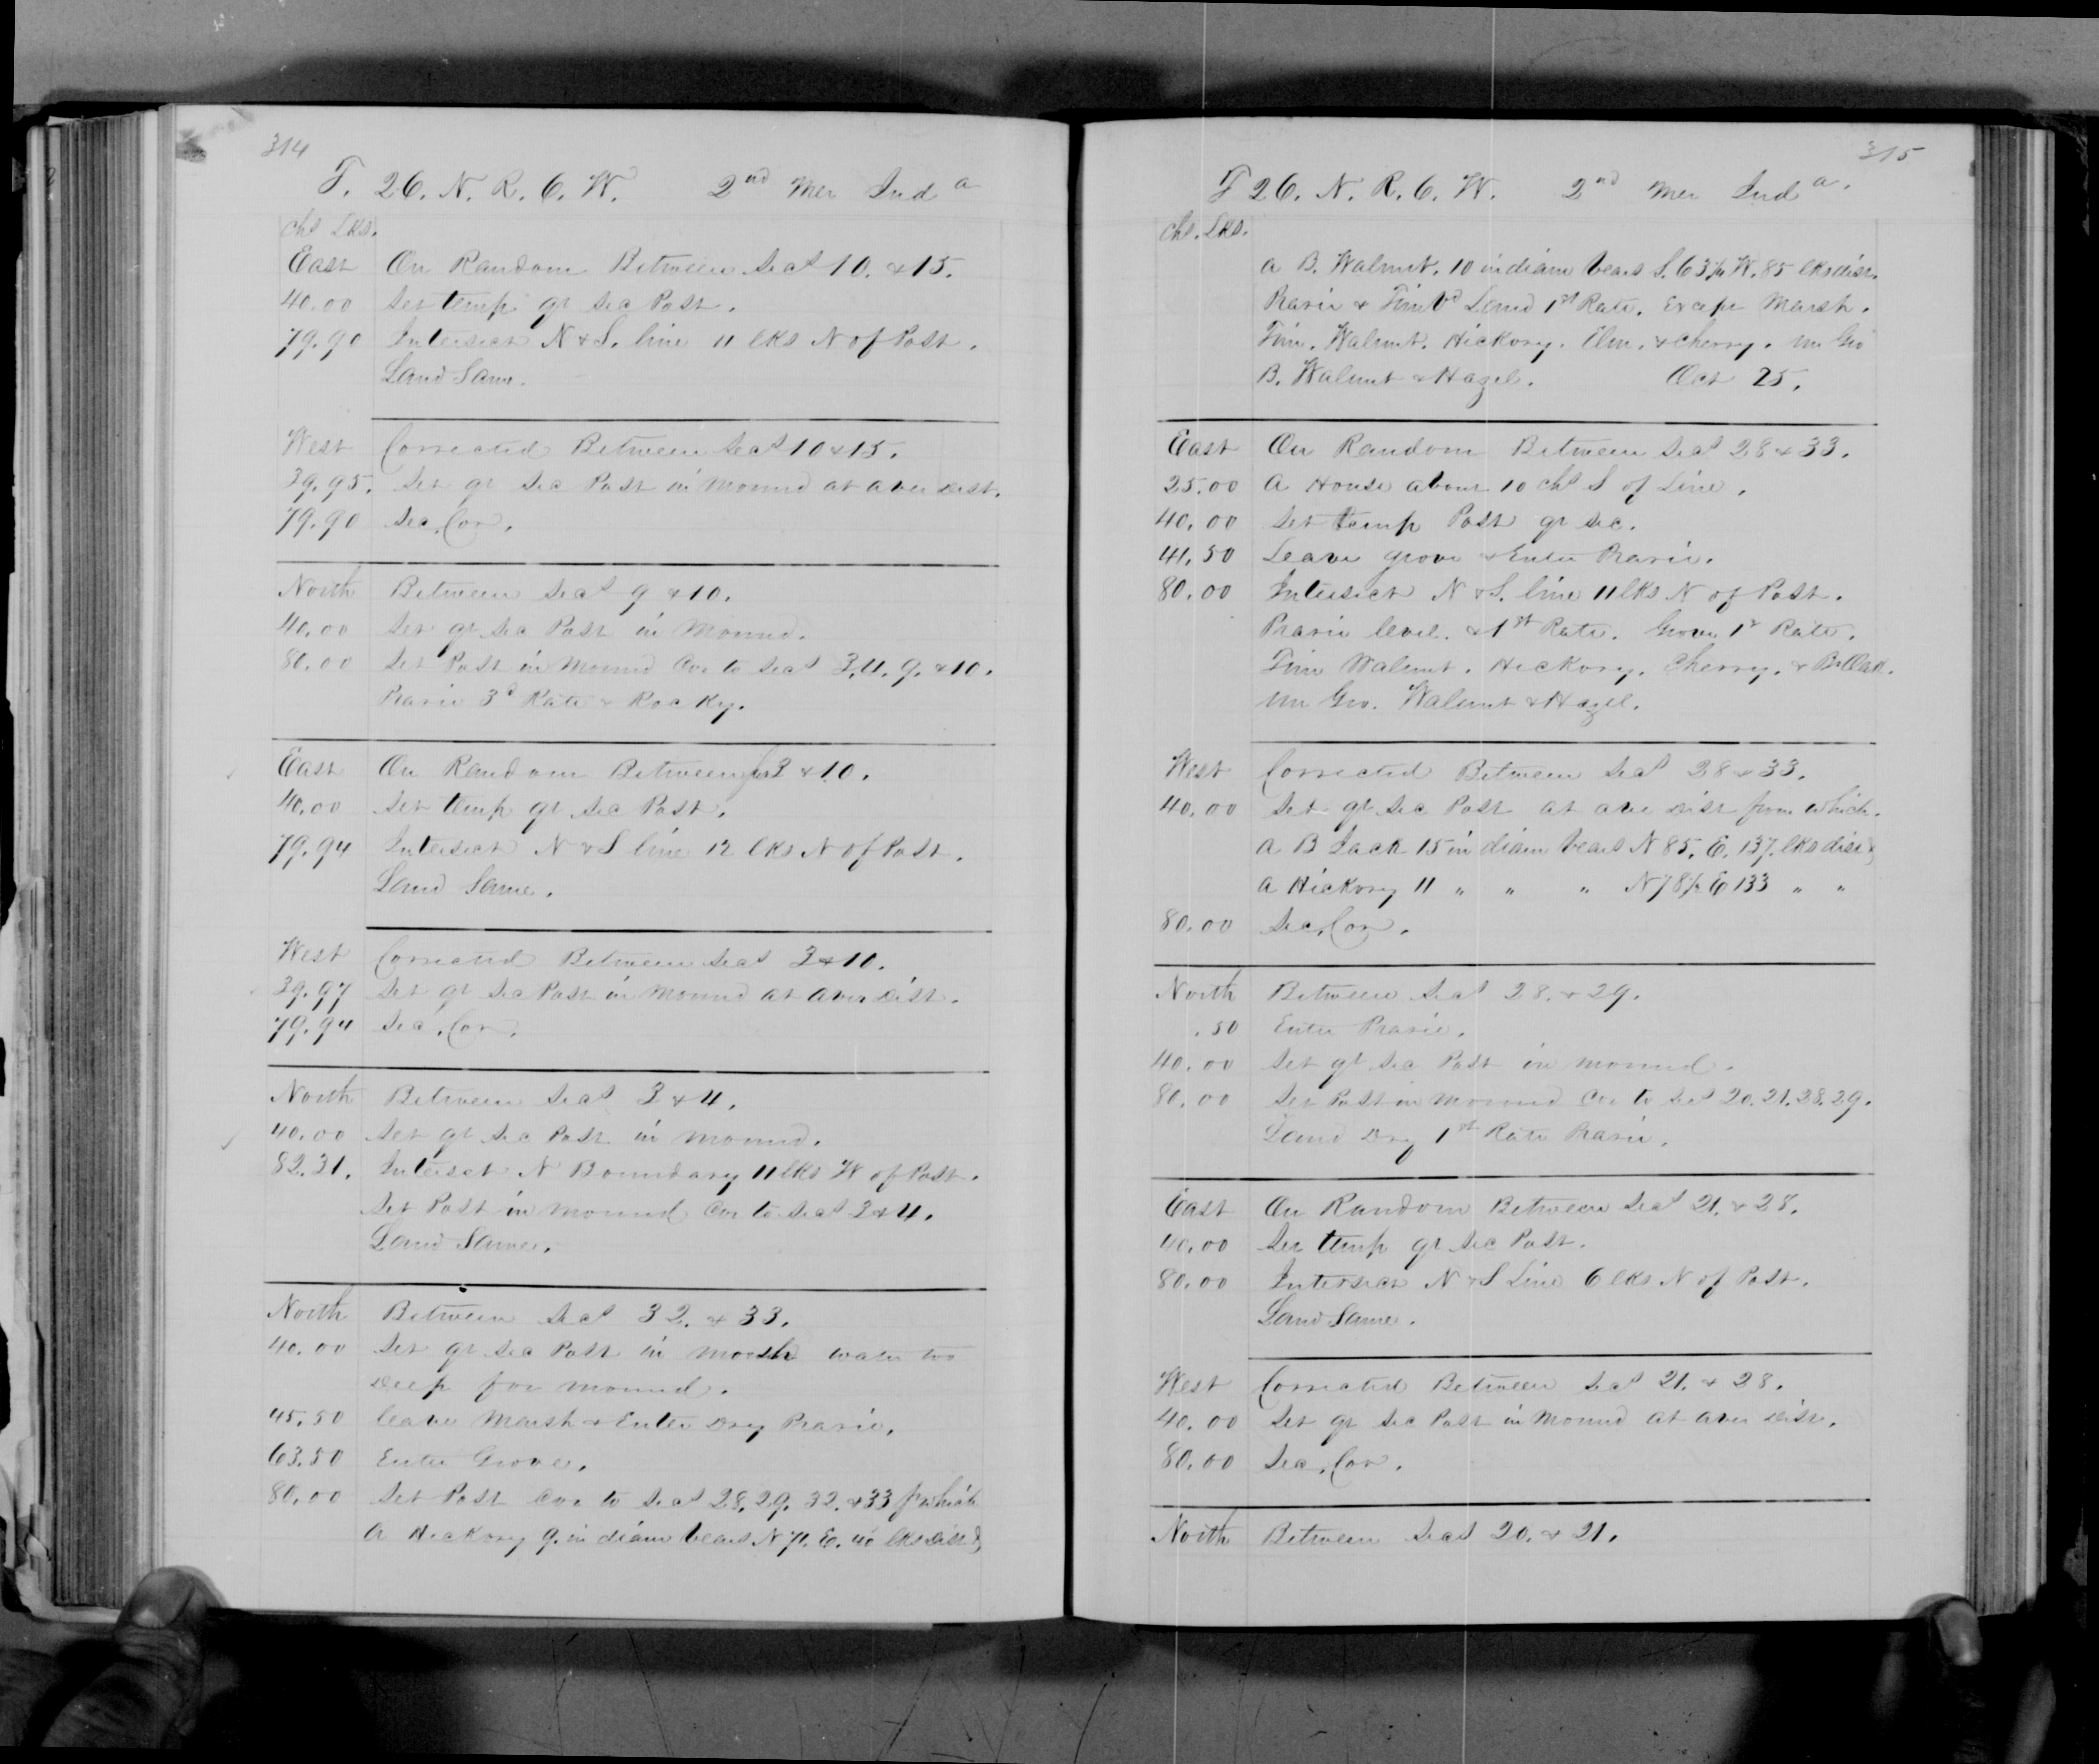 314
T. 26. N. R. 6. W. 2nd Mer Inda
Chs Lks.
East On Random Between Secs 10. & 15.
40.00 Set temp qr Sec Post.
79.90 Intersect N & S. line 11 lks N of Post.
Land Same.
West Corrected Between Secs 10 & 15.
39.95. Set qr Sec Post in Mound at aver Dist.
79.90 Sec. Cor.
North Between Secs 9 & 10.
40.00 Set qr Sec Post in Mound.
80.00 Set Post in Mound Cor to Secs 3, 4, 9, & 10.
Prarie 3d Rate & Rocky.
East On Random Between Sec 3 & 10.
40.00 Set temp qr Sec Post.
79.94 Intersect N & S line 12 lks N of Post.
Land Same.
West Corrected Between Secs 3 & 10.
39.97 Set qr Sec Post in Mound at aver Dist.
79.94 Sec. Cor.
North Between Secs 3 & 4.
40.00 Set qr Sec Post in Mound.
82.31. Intersct N Boundary 11 lks W of Post.
Set Post in Mound Cor to Secs 3 & 4.
Land Same.
North Between Secs 32. & 33.
40.00 Set qr Sec Post in Marsh water too
Deep for Mound.
45.50 leave Marsh & Enter Dry Prarie.
63.50 Enter Grove.
80.00 Set Post Cor to Secs 28, 29, 32, & 33 fr which
A Hickory 9. in diam bears N 71. E. 40 lks Dist &
315
T 26. N. R. 6. W. 2nd Mer Inda.
Chs. Lks.
a B. Walnut. 10 in diam bears S. 63½ W. 85 lks dist.
Prarie & Timbd Land 1st Rate. Except Marsh.
Tim. Walnut. Hickory. Elm. & Cherry. Un Gro
B. Walnut & Hazel. Oct 25.
East On Random Between Secs 28 & 33.
25.00 A House about 10 chs S of Line.
40.00 Set temp Post qr Sec.
41.50 Leave grove & Enter Prarie.
80.00 Intersect N & S. line 11 lks N of Post.
Prarie level. & 1st Rate. Grove 1st Rate.
Tim Walnut. Hickory. Cherry. & Br Oak.
Un Gro. Walnut & Hazel.
West Corrected Between Secs 28 & 33.
40.00 Set qr Sec Post at aver Dist from which.
A B Jack 15 in diam bears N 85. E. 137. lks dist &
A Hickory 11 " " " N 78½ E 133 " "
80.00 Sec. Cor.
North Between Secs 28. & 29.
.50 Enter Prarie.
40.00 Set qr Sec Post in Mound.
80.00 Set Post in Mound Cor to Secs 20. 21. 28. 29.
Land Dry 1st Rate Prarie.
East On Random Between Secs 21. & 28.
40.00 Set temp qr Sec Post.
80.00 Intersect N & S Line 6 lks N of Post.
Land Same.
West Corrected Between Secs 21. & 28.
40.00 Set qr Sec Post in Mound at aver Dist.
80.00 Sec. Cor.
North Between Secs 20. & 21.